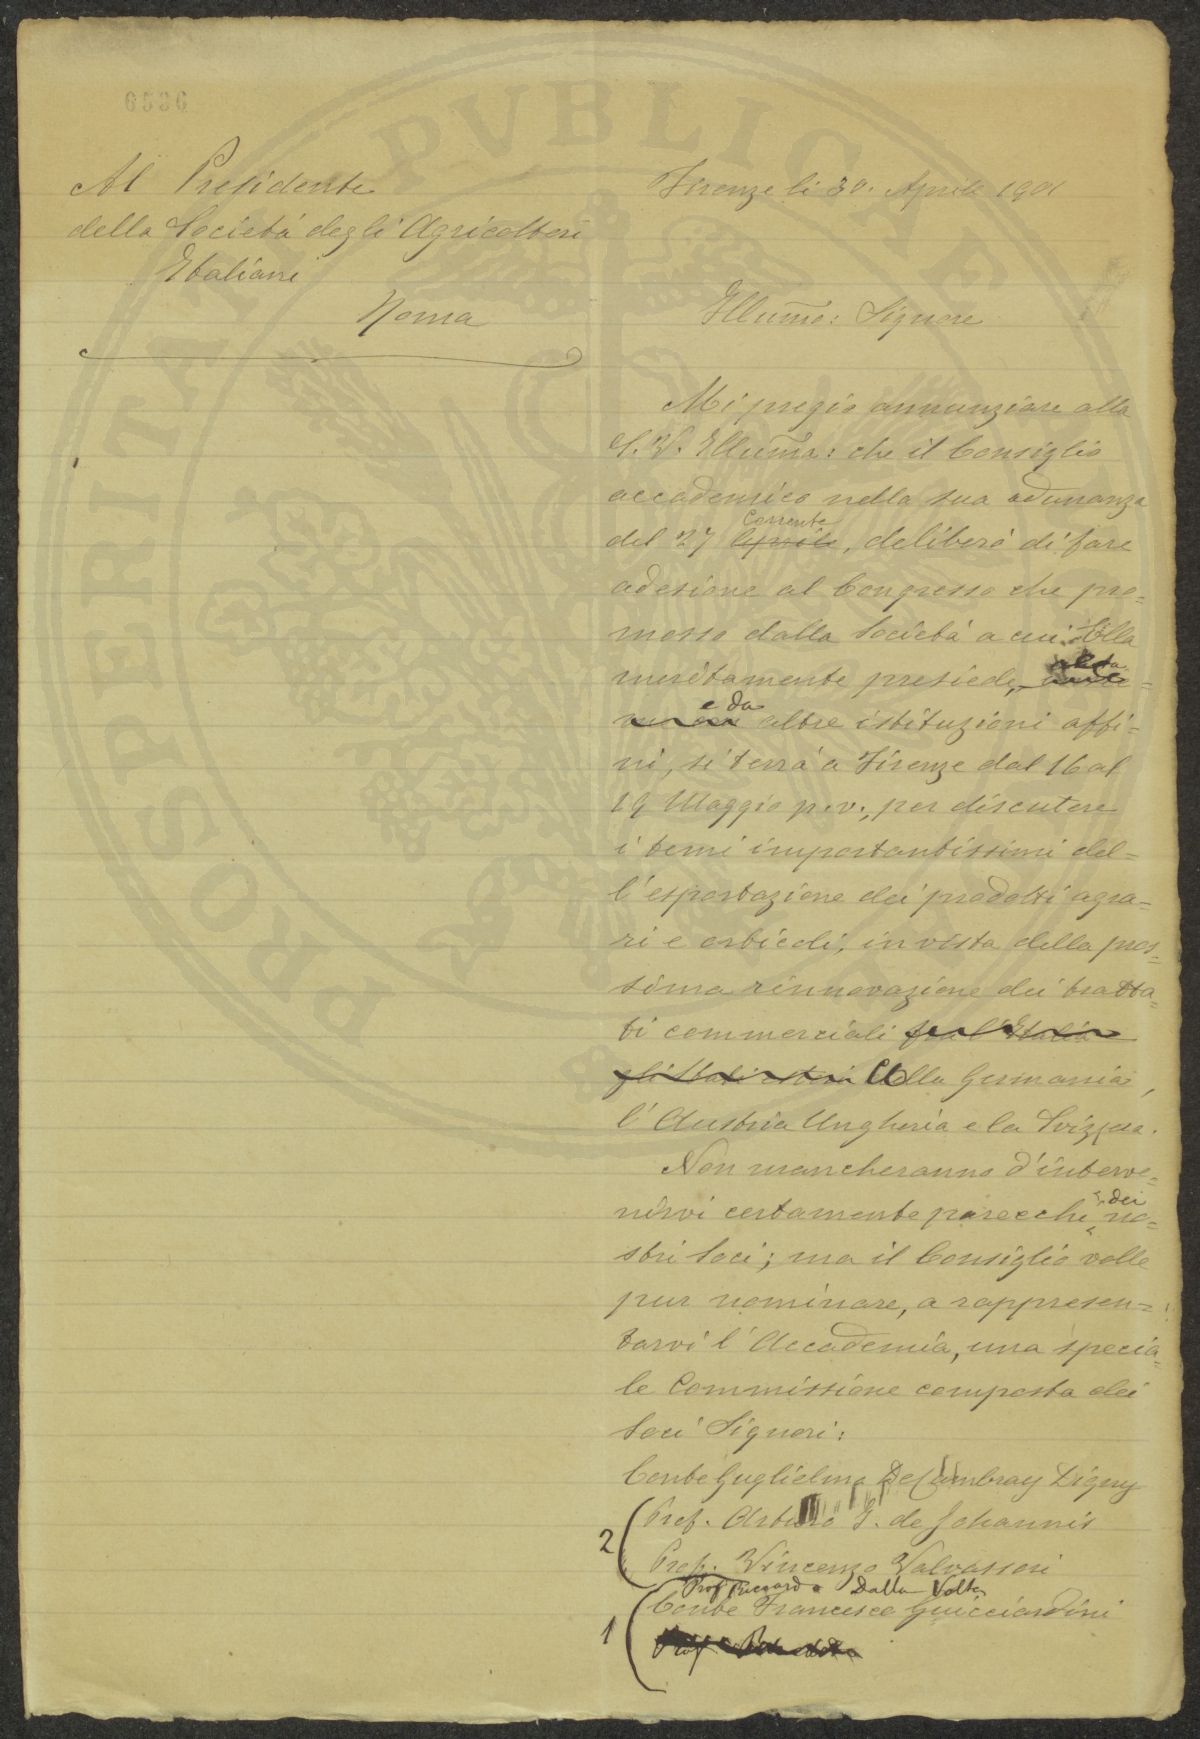 6536
PROSPERITATI PVBLICAE AVGENDAE
Al Presidente
della Società degli Agricoltori
Italiani
Roma
Firenze li 30. Aprile 1901
Illumo: Signore
Mi pregio annunziare alla
S. V. Illuma: che il Consiglio
accademico nella sua adunanza
corrente
del 27 Aprile, deliberò di fare
adesione al Congresso che pro=
mosso dalla Società a cui Ella
meritamente presiede,
e da
altre istituzioni affi=
ni, si terrà a Firenze dal 16 al
19 Maggio p. v., per discutere
i temi importantissimi del=
l'esportazione dei prodotti agra=
ri e orticoli, in vista della pros=
sima rinnovazione dei tratta=
ti commerciali fra l'Italia e
gli Stati esteri colla Germania,
l'Austria Ungheria e la Svizzera.
Non mancheranno d'interve=
dei
nirvi certamente parecchi no=
stri Soci; ma il Consiglio volle
pur nominare, a rappresen=
tarvi l'Accademia, una specia=
le Commissione composta dei
Soci Signori:
Conte Guglielmo De Cambray Digny
2
Prof. Arturo J. de Johannis
Prof. Vincenzo Valvassori
Prof Riccardo Dalla Volta
1
Conte Francesco Guicciardini
Prof